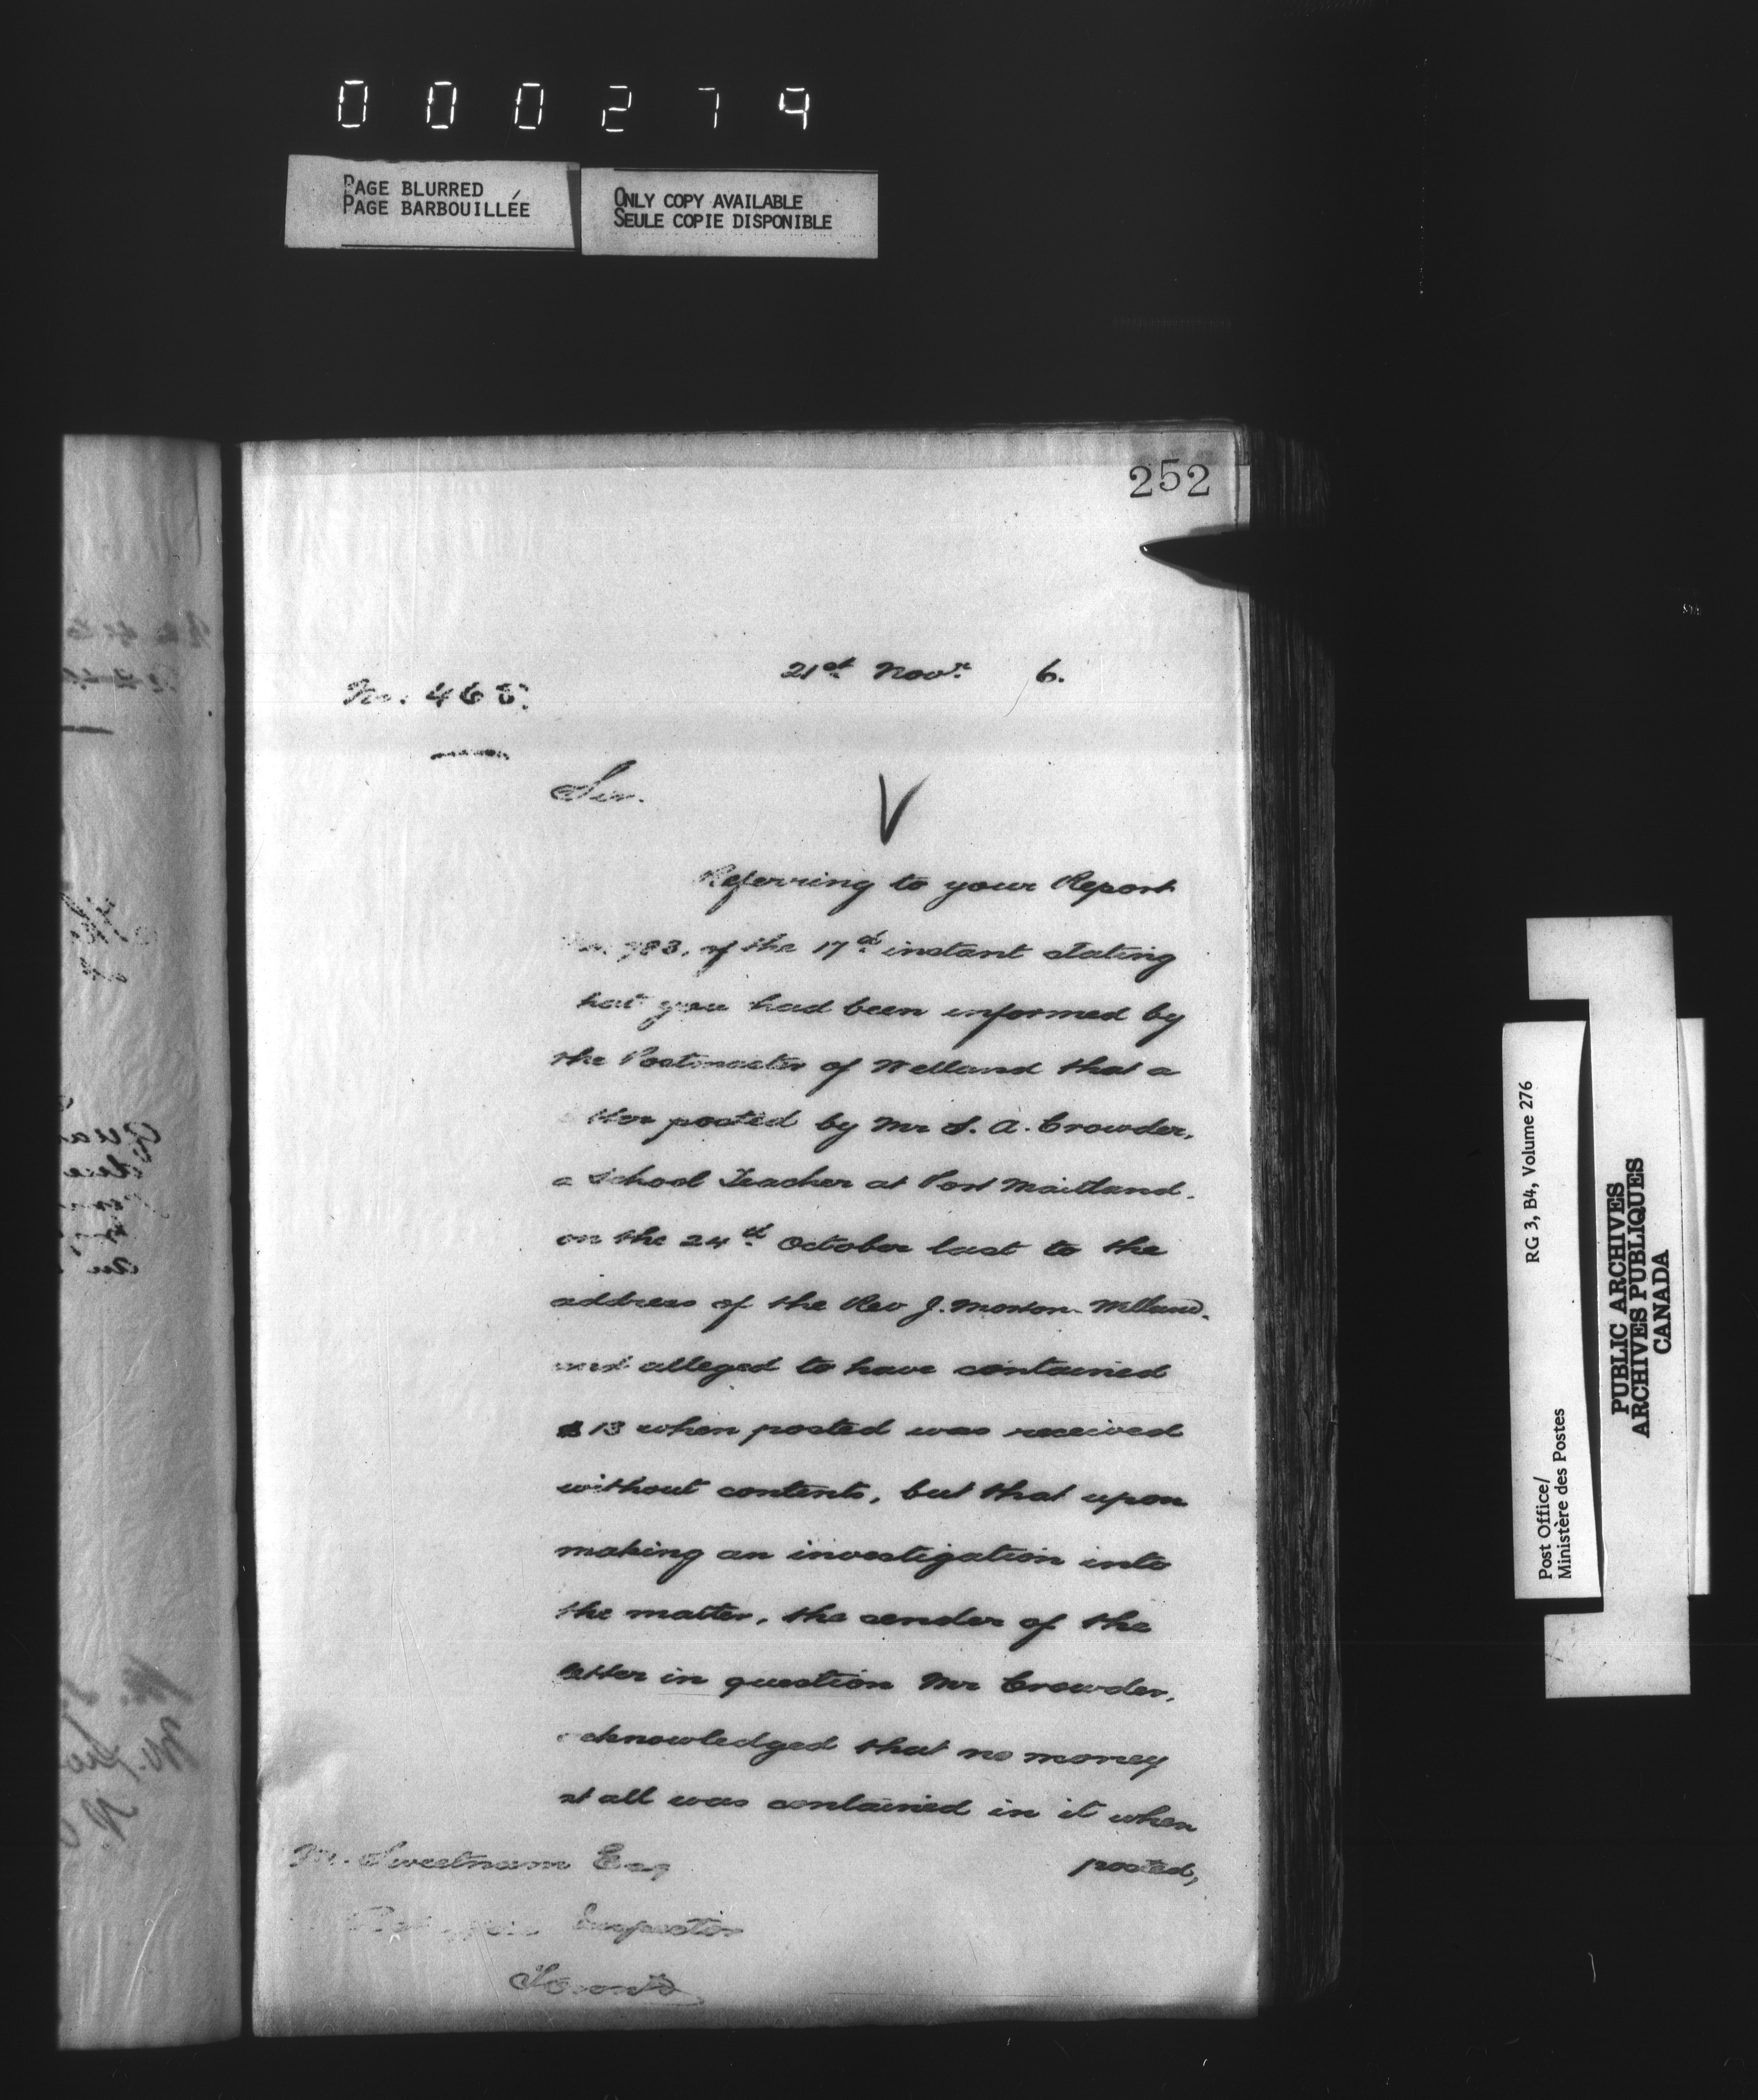 000279
PAGE BLURRED
PAGE BARBOUILLÉE
ONLY COPY AVAILABLE
SEULE COPIE DISPONIBLE
252
21st Novr. 6.
No. 465.
Sir.
Referring to your Report
No. 783, of the 17th instant stating
hat you had been informed by
the Postmaster of Welland that a
tter posted by Mr S. A. Crowder,
a School Teacher at Port Maitland.
on the 24th October last to the
address of the Rev J. Morton. Welland.
and alleged to have contained
$13 when posted was received
without contents, but that upon
making an investigation into
the matter, the sender of the
letter in question Mr Crowder,
acknowledged that no money
at all was contained in it when
posted,
M. Sweetnam Esq
Post Office Inspector
Toronto
Post Office/
Ministère des Postes
RG 3, B4, Volume 276
PUBLIC ARCHIVES
ARCHIVES PUBLIQUES
CANADA